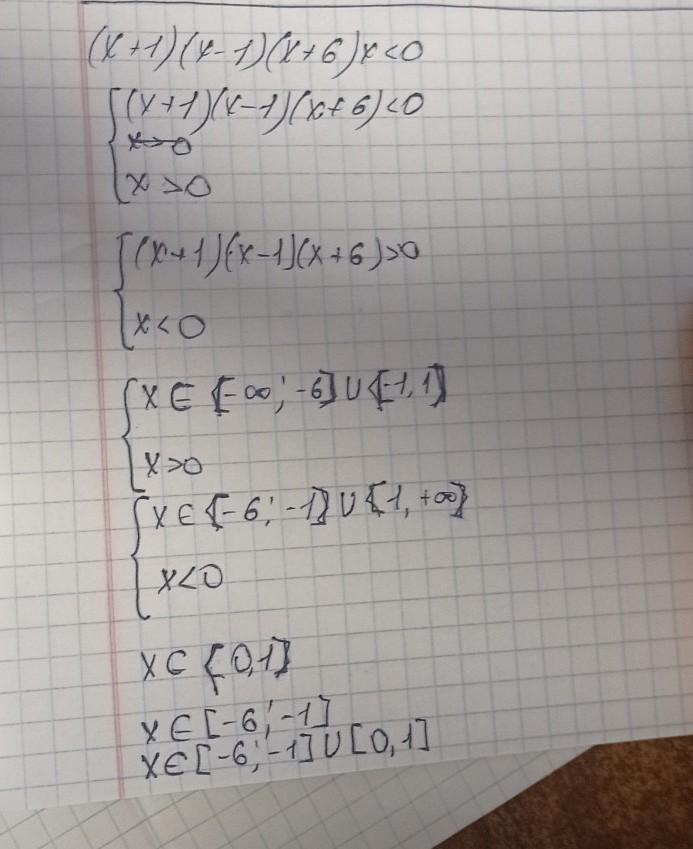 (x+1)(x-1)(x+6)x<0
{(x+1)(x-1)(x+6)<0
x>0
x>0
{(x+1)(x-1)(x+6)>0
x<0
{x∈[-∞;-6]∪[-1,1]
x>0
{x∈[-6;-1]∪[1,+∞]
x<0
x∈[0,1]
x∈[-6;-1]
x∈[-6;-1]∪[0,1]